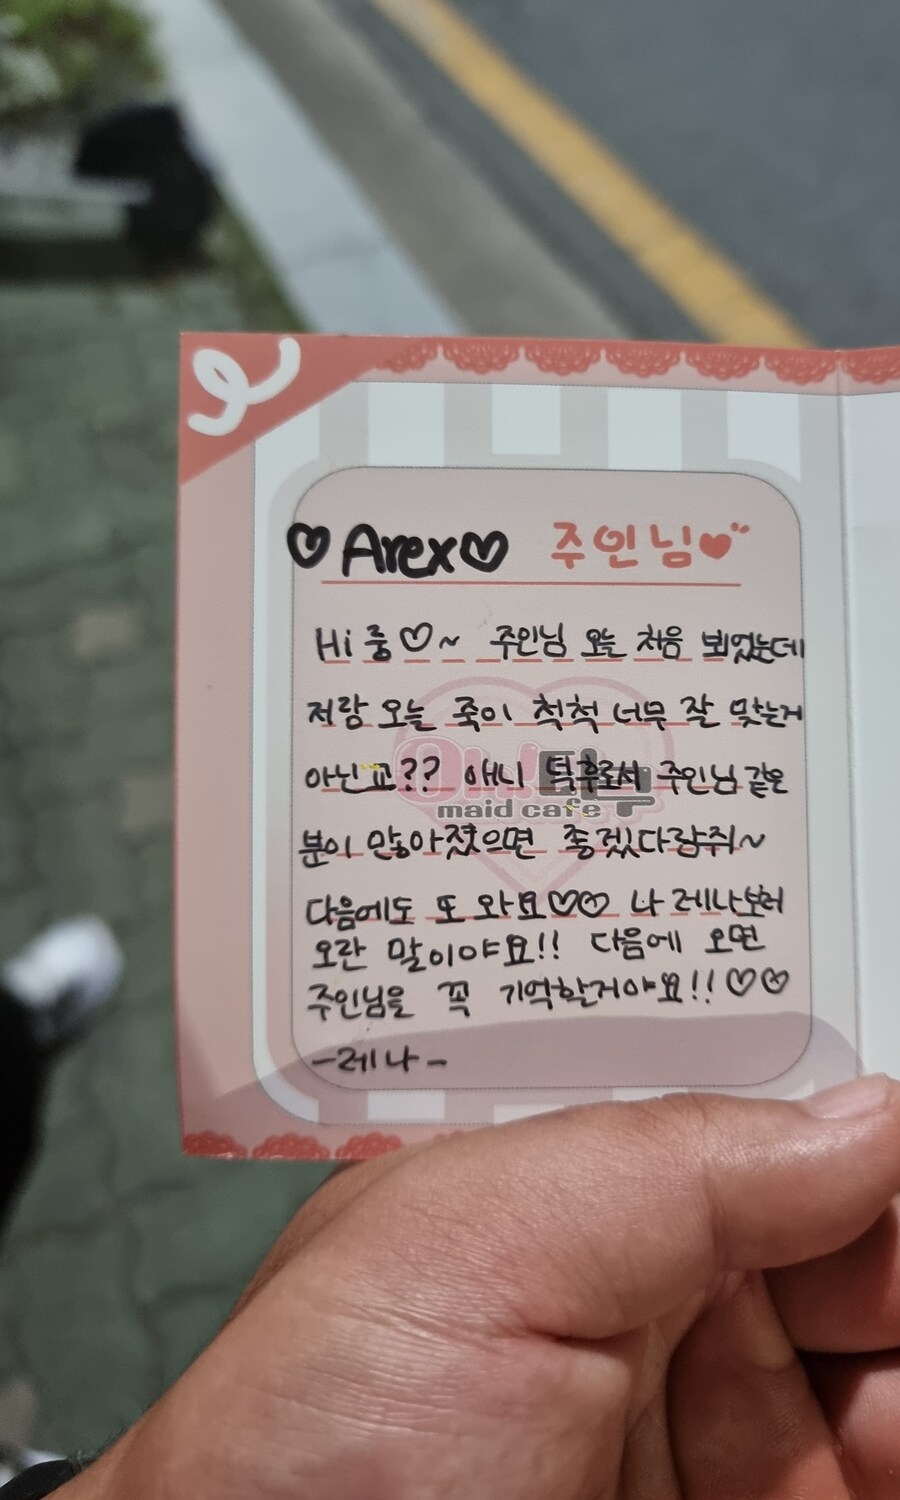 ♡Arex♡ 주인님♥
Hi 룽♡~ 주인님 오늘 처음 뵈었는데
저랑 오늘 죽이 척척 너무 잘 맞는거
아닌교?? 애니 턱후로서 주인님 같은
분이 많아졌으면 좋겠다람쥐~
다음에도 또 와요♡♡ 나 레나보러
오란 말이야요!! 다음에 오면
주인님을 꼭 기억할거야요!!♡♡
-레나-
maid cafe